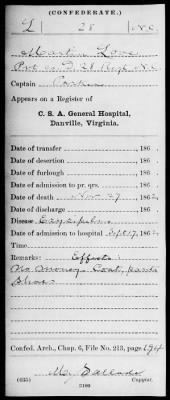 (CONFEDERATE.)
L 28 N.C.
Martin Love
Pvt Co D 28 Regt N.C.
Captain
Appears on a Register of
C. S. A. General Hospital,
Danville, Virginia.
Date of transfer , 186
Date of desertion , 186
Date of furlough , 186
Date of admission to pr. qrs. , 186
Date of death Nov 27 , 1862
Date of discharge , 186
Disease Erysipelas
Date of admission to hospital Sept 17 , 1862
Time
Remarks: Effects:
No money Coat, pants
Shoes
Confed. Arch., Chap. 6, File No. 213, page 194
(635) Copyist.